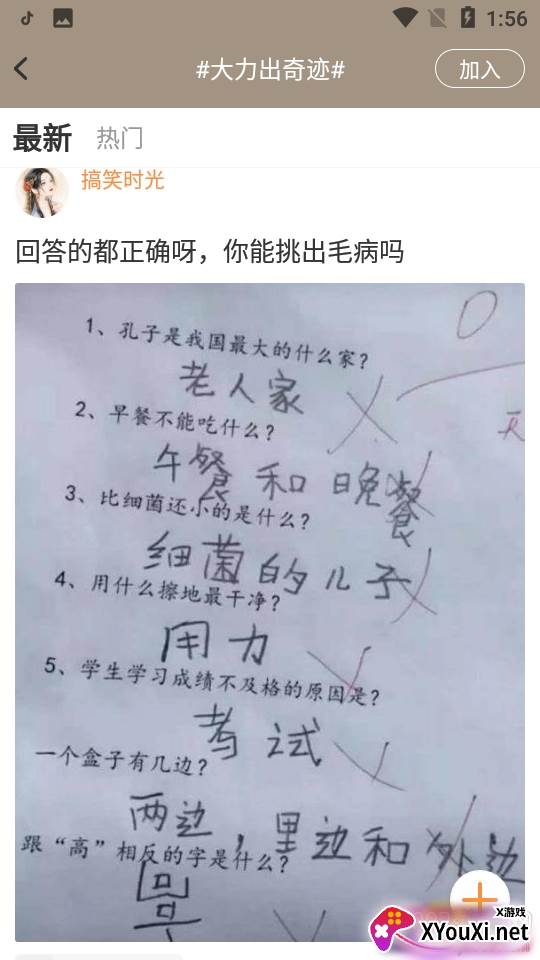 1:56
#大力出奇迹#
加入
最新 热门
搞笑时光
回答的都正确呀，你能挑出毛病吗
1、孔子是我国最大的什么家？
老人家
2、早餐不能吃什么？
午餐和晚餐
3、比细菌还小的是什么？
细菌的儿子
4、用什么擦地最干净？
用力
5、学生学习成绩不及格的原因是？
考试
一个盒子有几边？
两边，里边和外边
跟“高”相反的字是什么？
X游戏
XYouXi.net